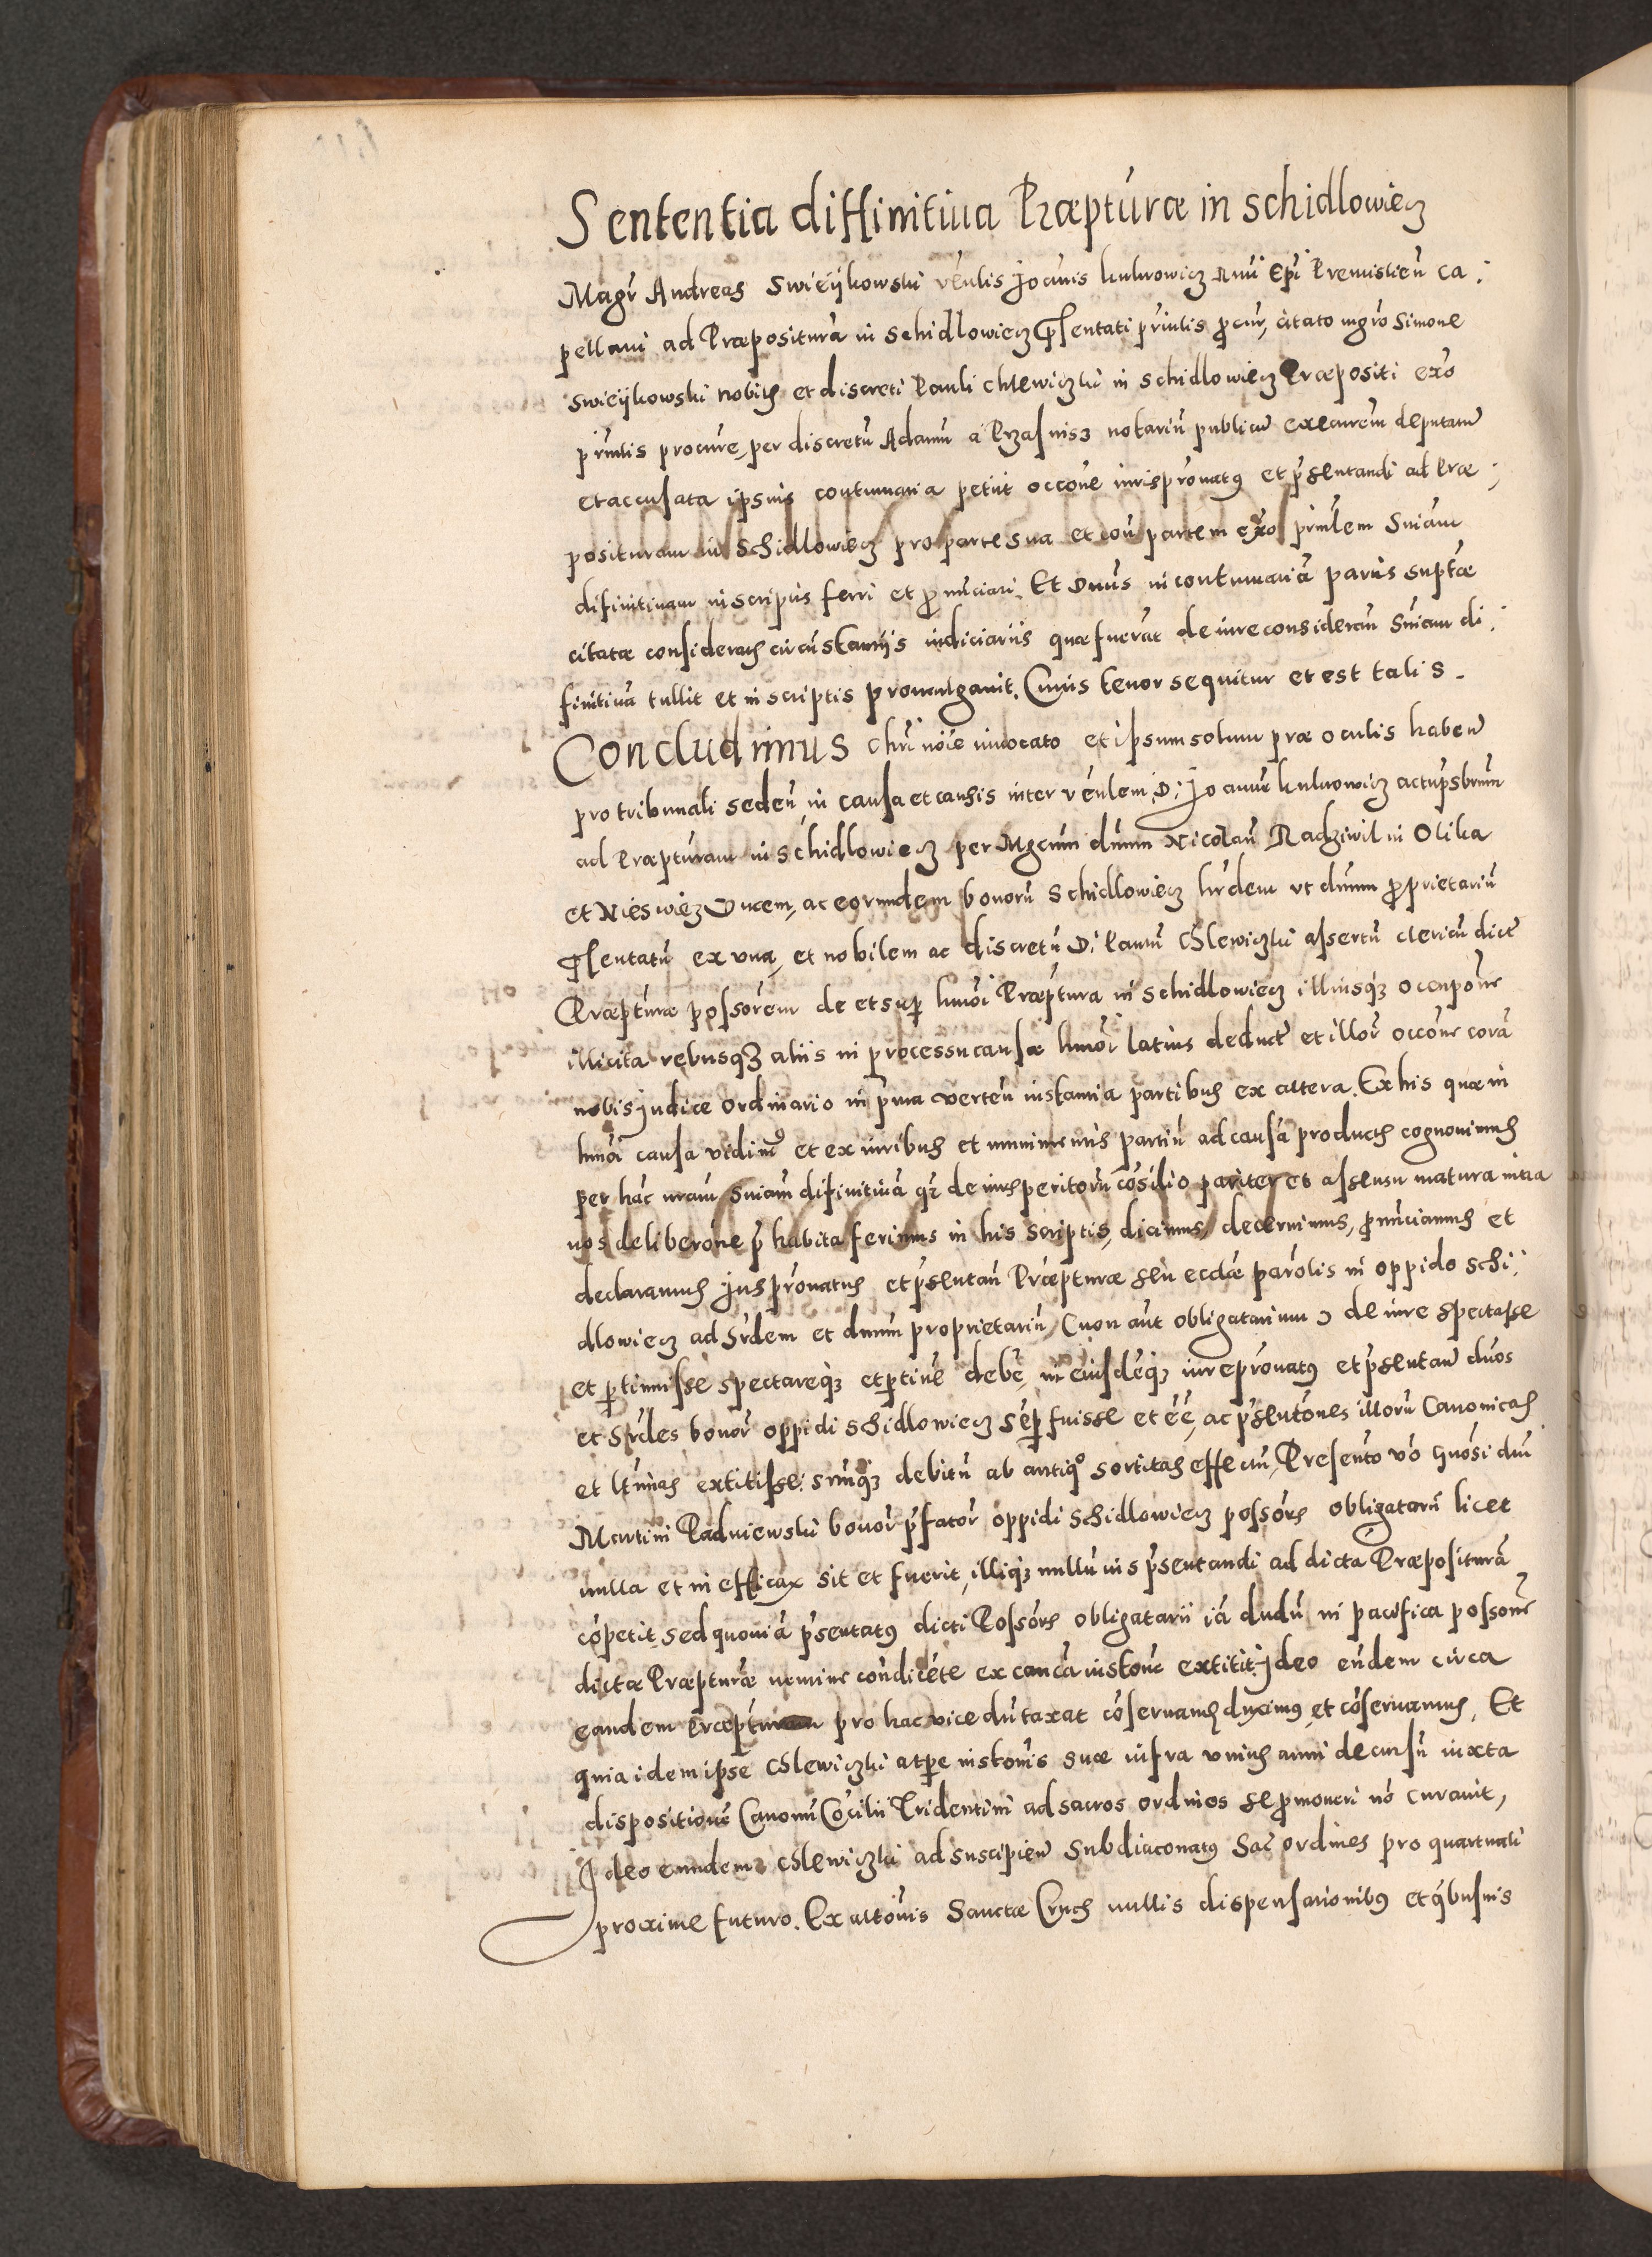 Sententia diffinitiua Præpturæ in schidlowiecz
Magr Andreas Swieÿkowski venlis Joannis kulwowicz Rmi Epi Premislien Ca:
pellani ad Præposituram in Schidlowiecz psentati prinlis procur, citato mgro Simone
Swieÿkowski nobilis et discreti Pauli chlewiczki in schidlowiecz Præpositi exo
prinlis procure, per discretu Adamu a Przasnisz notariu publicu executrem deputatu
et accusata ipsius contumacia petiit occone iurispronatus et psentandi ad Præ:
posituram in Schidlowiecz pro parte sua et con partem exo prinlem Sniam
difinitiuam in scriptis ferri et pronunciari. Et Dnus in contumaciã partis suptæ
citatæ consideratis circumstantijs iudiciariis quæ fuerat de iure considerau Sniam di:
finitiuã tullit et in scriptis promulgauit. Cuius tenor sequitur et est talis.
Concludimus Chri noie inuocato et ipsum solum præ oculis haben
pro tribunali seden, in causa et causis inter venlem D: Joannem kulwowicz actu psbrum
ad Præpturam in schidlowiecz per Mgcum dnum Nicolau Radziwil in Olika
et Nieswiez Ducem, ac eorundem bonoru Schidlowiecz hrdem vt dnum proprietariu
psentatu ex vna, et nobilem ac discretu D: Paulu Chlewiczki assertu clericu dict
Præpturæ possorem de et sup hmoi Præptura in Schidlowiecz illiusqz occupone
illicita rebusqz aliis in processu causæ hmoi latius deduct et illor occone corã
nobis judice ordinario in prima verten instantia partibus ex altera. Ex his quæ in
hmoi causa vidimus et ex iuribus et munimentis partiu ad causã productis cognouimus
per hãc nram sniam difinitiuã qz de iurisperitoru cosilio pariter et assensu matura intra
nos deliberone p habita ferimus in his scriptis, dicimus, decernimus, pronunciamus et
declaramus Jus pronatus et psentan Præpturæ seu ecclæ parolis in oppido schi:
dlowiecz ad hrdem et dnum proprietariu (non aut obligatarium) de iure spectasse
et ptinuisse spectareqz et ptine debe, in eiusdeqz iurepronatus et psentan dnos
et hrdes bonor oppidi schidlowiecz sep fuisse et ee, ac psentones illoru Canonicas
et ltimas extitisse sumqz debitu ab antiqo sortitas effectu, Presento vo Gnosi dni
Martini Padniewski bonor pfator oppidi Schidlowiecz possoris obligatarii licet
nulla et inefficax sit et fuerit, illiqz nullu ius psentandi ad dictã Præposituram
copetit, sed quoniã psentatus dicti Possoris obligatarii iã dudu in pacifica possone
dictæ Præpturæ nemine condicete ex caucã instone extitit. Jdeo eundem circa
eandem Præpturam pro hac vice dutaxat coseruandu duximus, et coseruamus. Et
quia idem ipse Chlewiczki a tpe instonis suæ infra vnius anni decursu iuxta
dispositione Canonu Cocilii Tridentini ad sacros ordines se promoueri no curauit,
Jdeo eundem Chlewiczki ad suscipien Subdiaconatus Sac ordines pro quartuali
proxime futuro. Exaltonis Sanctæ Crucis nullis dispensationibus et qbusuis